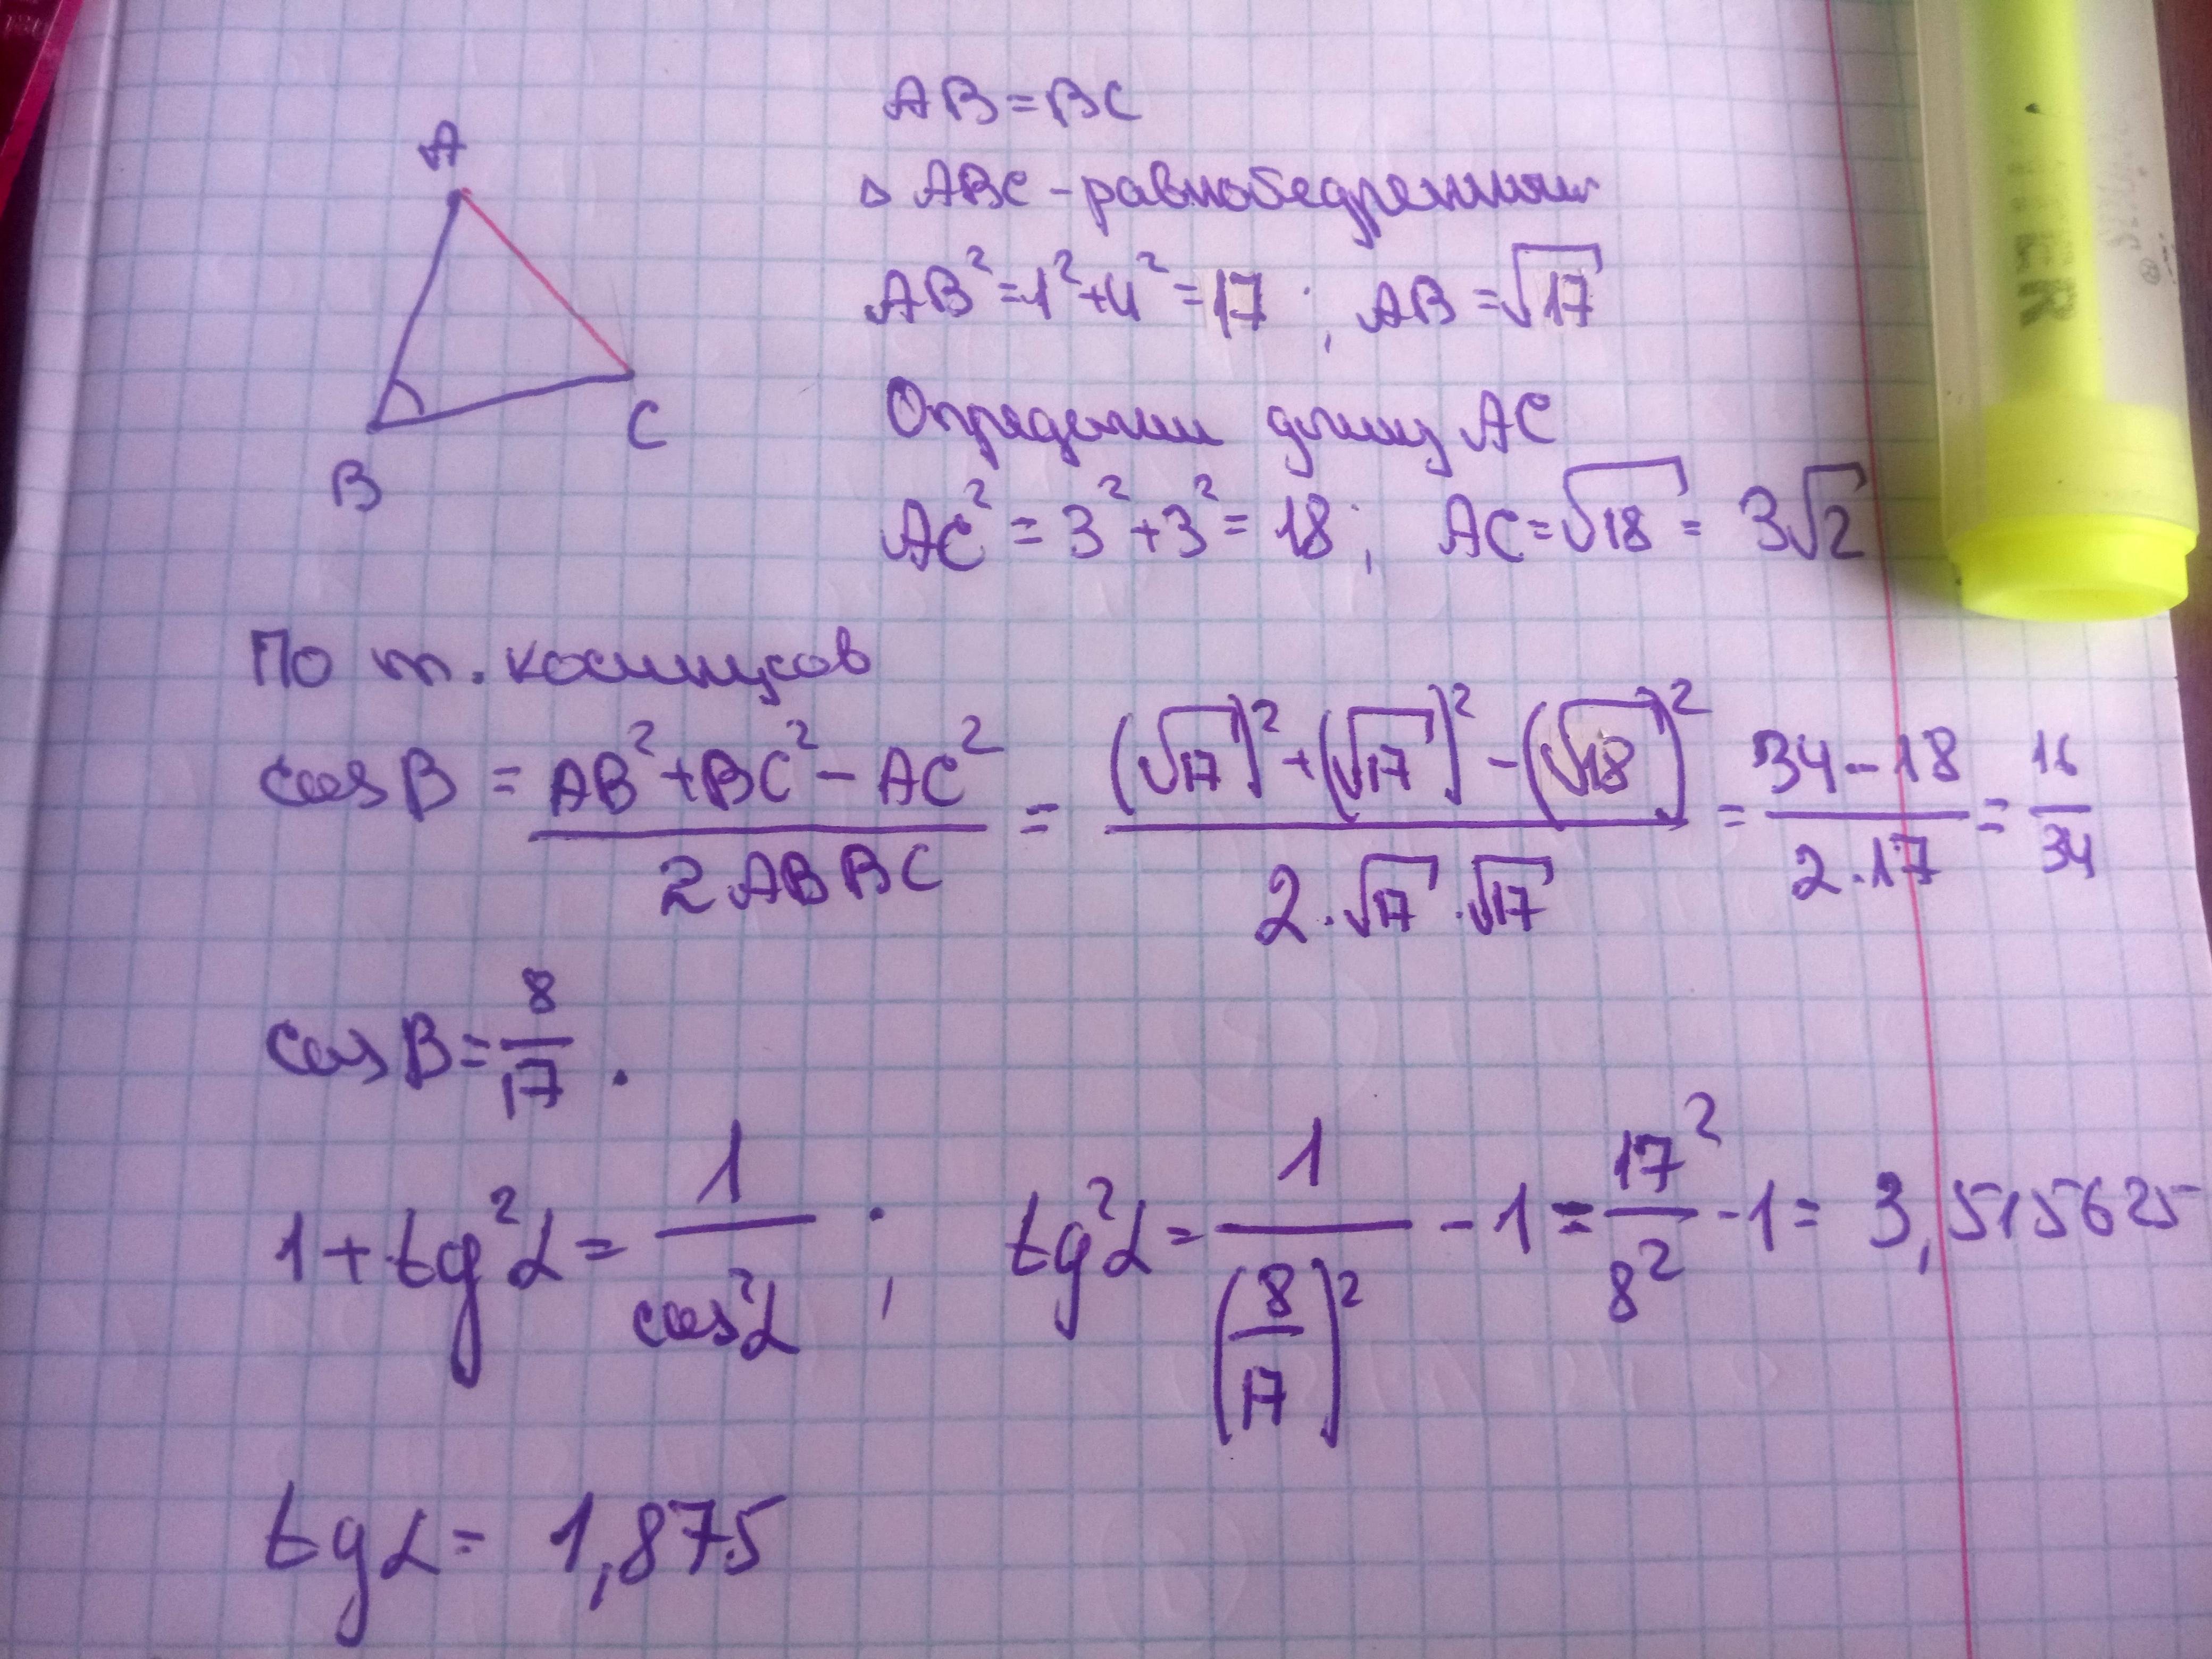 AB=BC
△ ABC - равнобедренный
AB²=1²+4²=17 ; AB=√17
A
B
C
Определим длину AC
AC² = 3²+3² = 18 ; AC=√18 = 3√2
По т. косинусов
cos B = (AB²+BC²-AC²)/(2ABBC) = ((√17)²+(√17)²-(√18)²)/(2·√17·√17) = (34-18)/(2·17) = 16/34
cos B = 8/17 .
1+tg²α = 1/cos²α ; tg²α = 1/(8/17)² - 1 = 17²/8² - 1 = 3,515625
tgα = 1,875